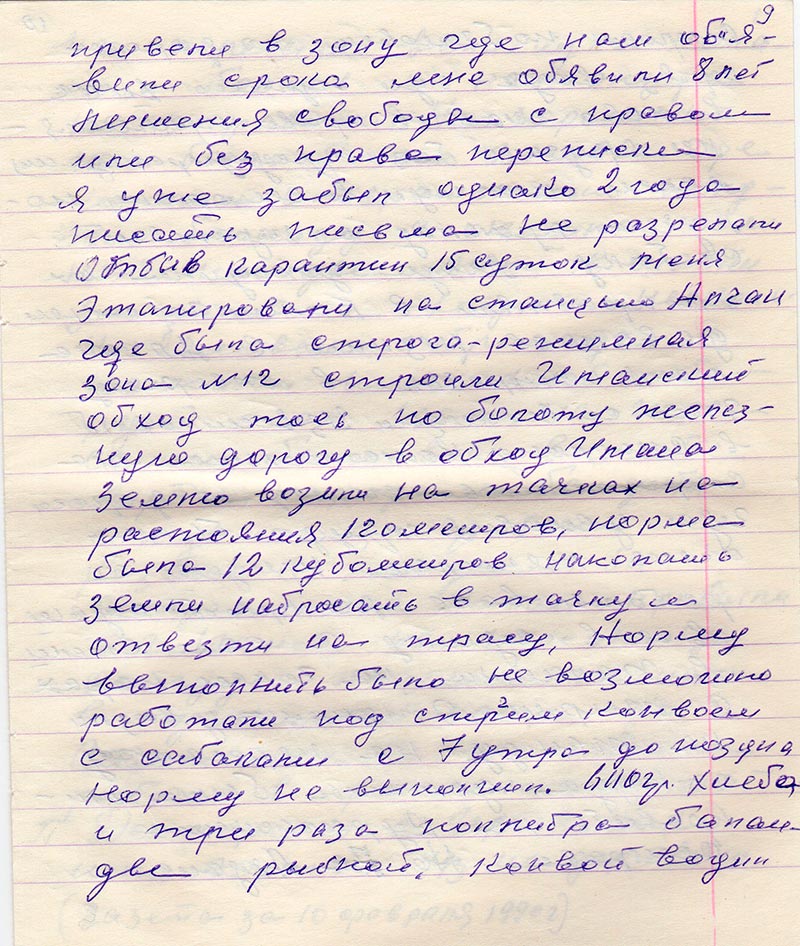 9
привели в зону где нам об"я-
вили срока мне обявили 8 лет
лишения свободы с правом
или без права переписки
я уже забыл однако 2 года
писать писвма не разрелали
Отбыв карантин 15 суток меня
этапировали на станцыю Апчан
где была строга-режимная
зона №12 строили Итамский
обход тоесь по болоту желез-
ную дорогу в обход Итама
Землю возили на тачках на
растояния 120 метров, норма
была 12 кубометров накопать
земли набросать в тачку и
отвезти на трасу, Норму
выполнить было не возможно
работали под стргим конвоем
с сабаками с 7 утра до поздна
норму не выполнил. 600гр. хлеба
и три раза по
рыбной, Конвой водил
(Газета за 10 февраля 1990г)